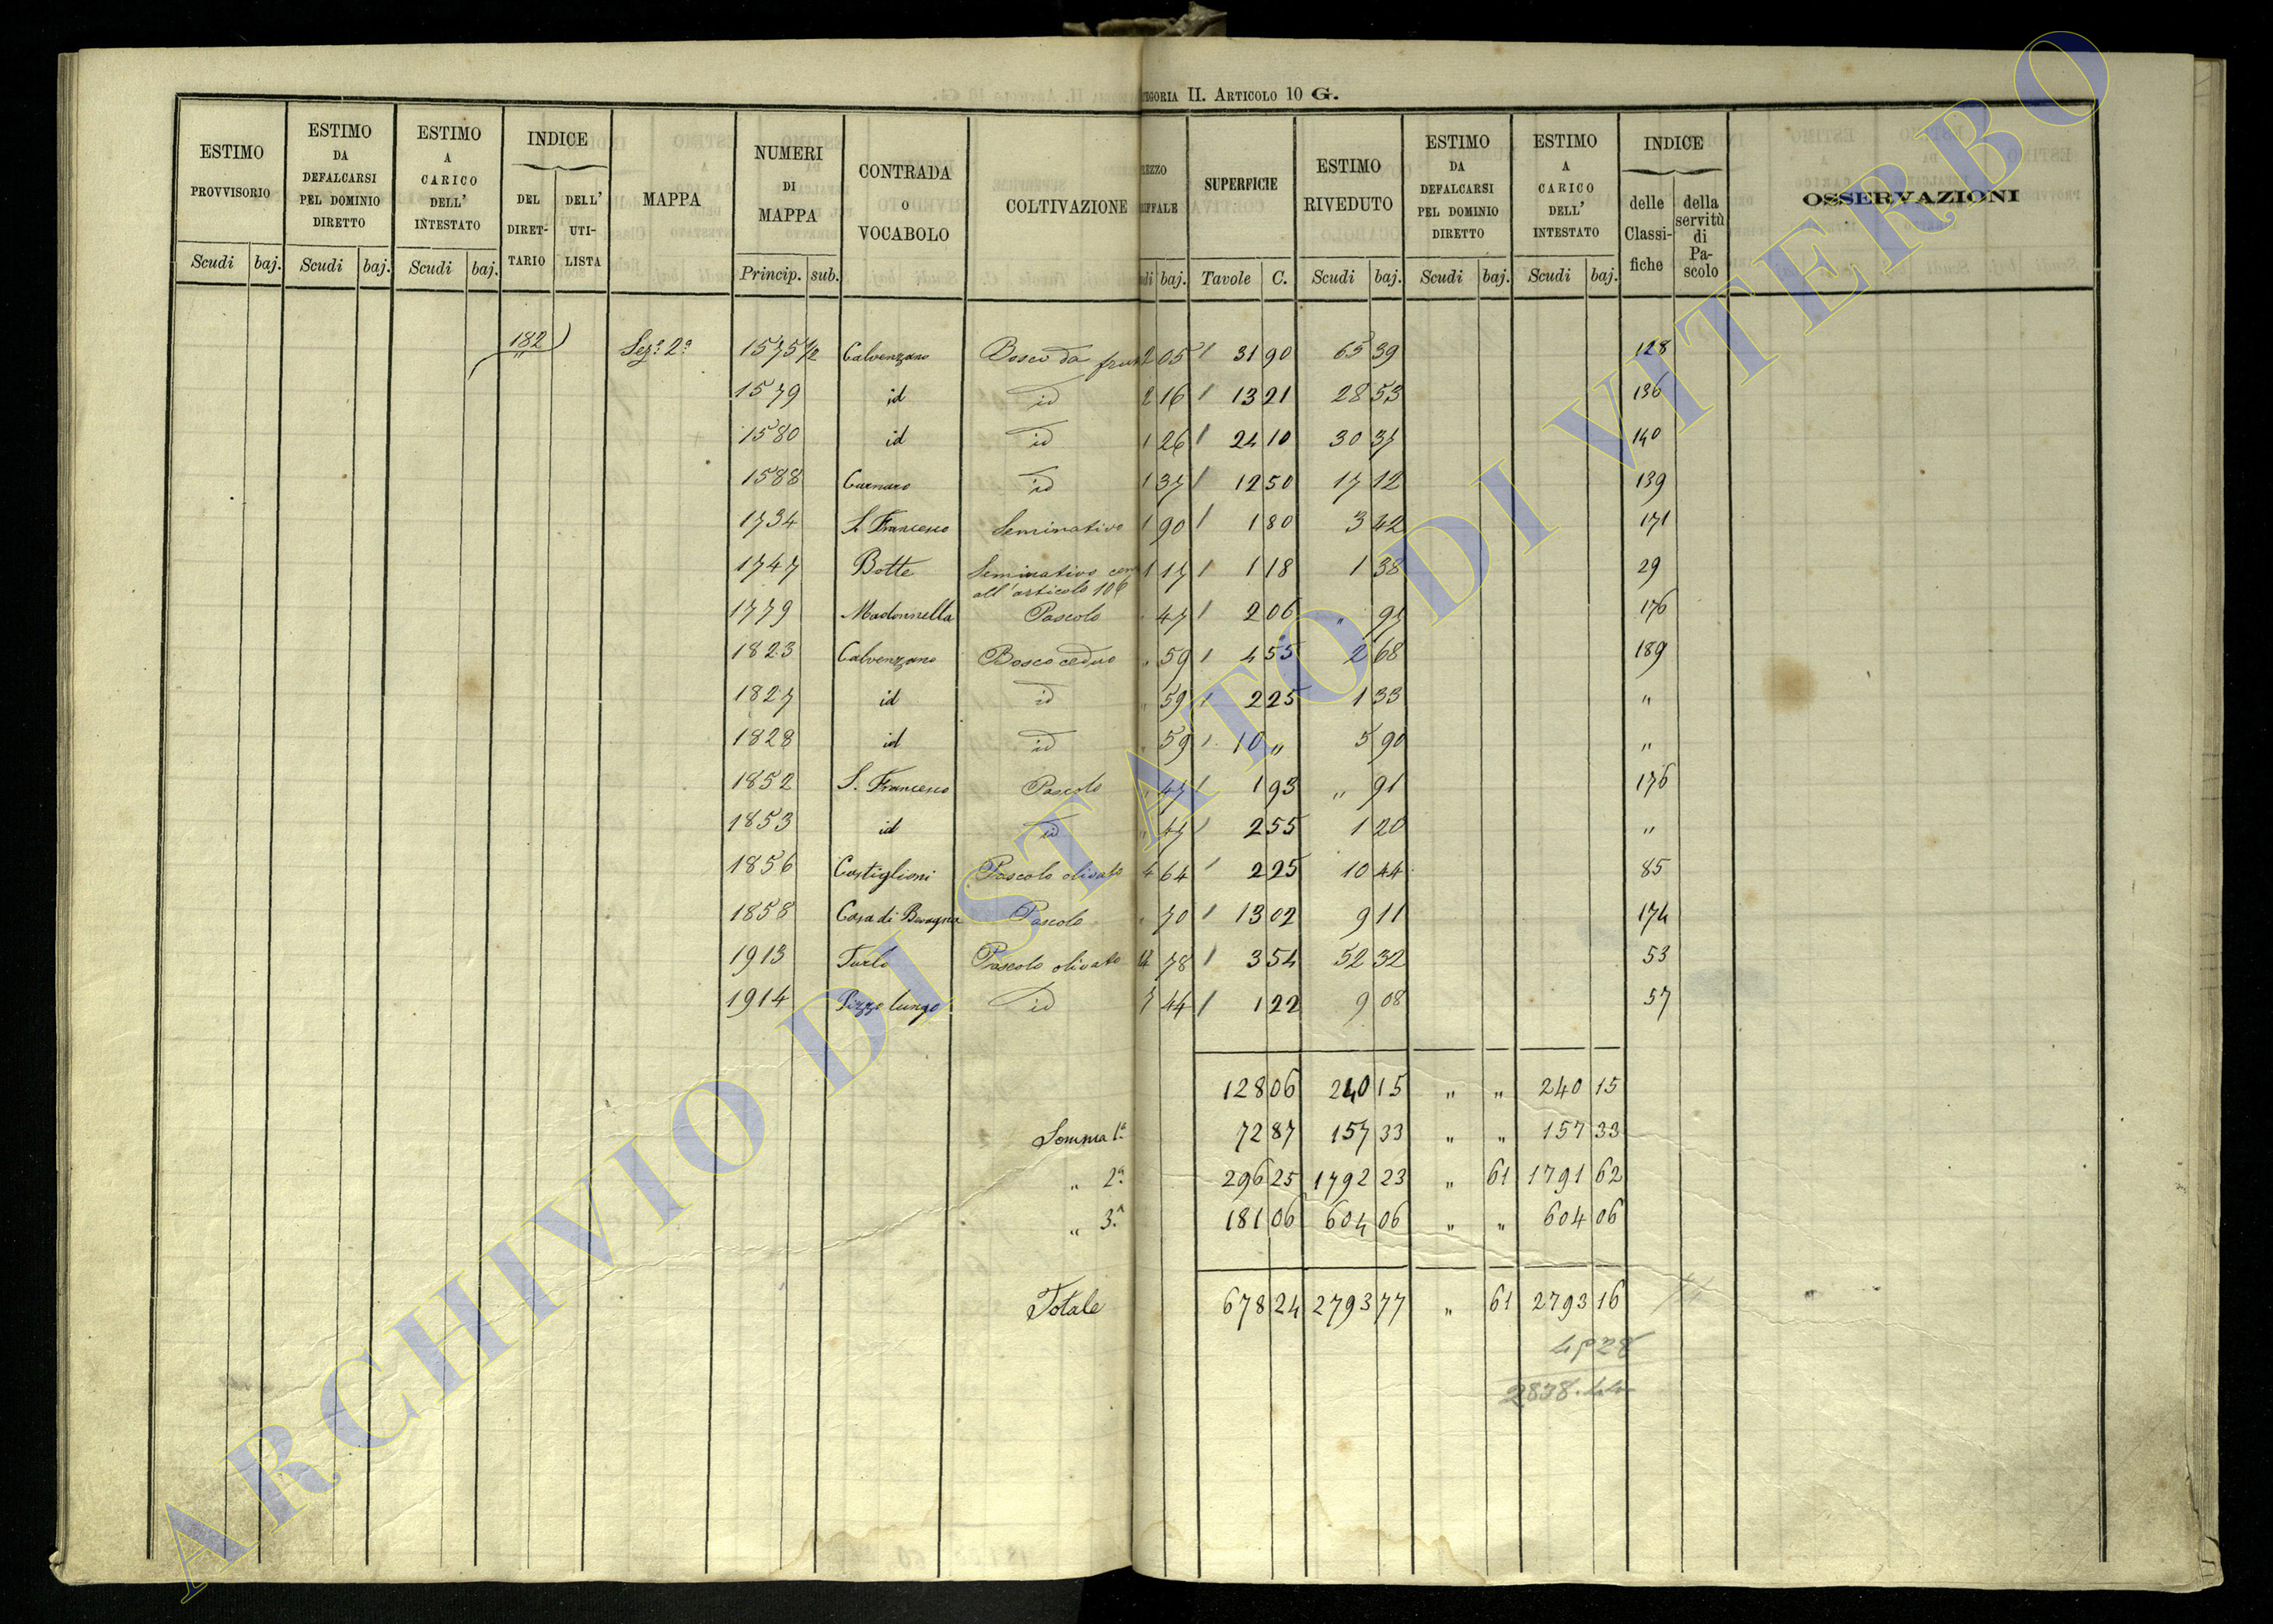 EGORIA II. ARTICOLO 10 G.
ESTIMO PROVVISORIO Scudi baj.
ESTIMO DA DEFALCARSI PEL DOMINIO DIRETTO Scudi baj.
ESTIMO A CARICO DELL' INTESTATO Scudi baj.
INDICE DEL DIRET-TARIO DELL' UTI-LISTA
MAPPA
NUMERI DI MAPPA Princip. sub.
CONTRADA O VOCABOLO
COLTIVAZIONE
REZZO UFFALE di baj.
SUPERFICIE Tavole C.
ESTIMO RIVEDUTO Scudi baj.
ESTIMO DA DEFALCARSI PEL DOMINIO DIRETTO Scudi baj.
ESTIMO A CARICO DELL' INTESTATO Scudi baj.
INDICE delle Classi-fiche della servitù di Pa-scolo
OSSERVAZIONI
182 Sez.e 2a 1575 1/2 Calvenzano Bosco da frut 2 05 31 90 65 39 128
1579 id id 2 16 13 21 28 53 136
1580 id id 1 26 24 10 30 37 140
1588 Carnaro id 1 37 12 50 17 12 139
1734 S. Francesco Seminativo 1 90 1 80 3 42 171
1747 Botte Seminativo 1 17 1 18 1 38 29
all'articolo 10
1779 Madonnella Pascolo 47 2 06 " 97 176
1823 Calvenzano Bosco ceduo " 59 4 55 2 68 189
1827 id id " 59 2 25 1 33 "
1828 id id " 59 10 " 5 90 "
1852 S. Francesco Pascolo " 47 1 93 " 91 176
1853 id id " 47 2 55 1 20 "
1856 Castiglioni Pascolo olivato 4 64 2 25 10 44 85
1858 Casa di Bevagna Pascolo " 70 13 02 9 11 174
1913 Turlo Pascolo olivato 78 3 54 52 32 53
1914 Pizzo lungo id 7 44 1 22 9 08 57
128 06 240 15 " " 240 15
Somma 1a 72 87 157 33 " " 157 33
" 2a 296 25 1792 23 " 61 1791 62
" 3a 181 06 604 06 " " 604 06
Totale 678 24 2793 77 " 61 2793 16
2838.44
ARCHIVIO DI STATO DI VITERBO